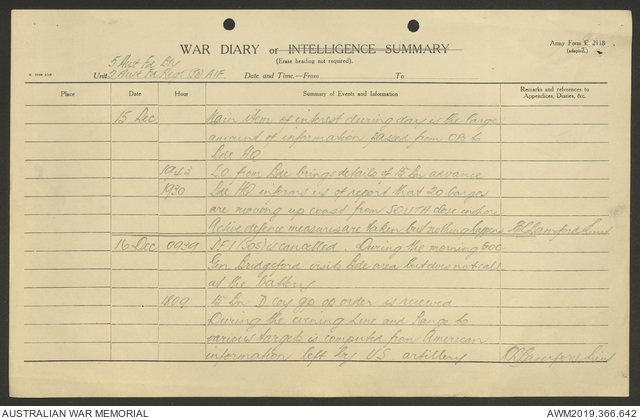 WAR DIARY or INTELLIGENCE SUMMARY
(Erase heading not required).
Army Form C 2118
(adapted.)
5 Aust Fd Bty
Unit 2 Aust Fd Regt AIF
Date and Time.—From To
Place Date Hour Summary of Events and Information Remarks and references to Appendices, Diaries, &c.
15 Dec Main item of interest during day is the large
amount of information passed from OPs to
Bde HQ
1942 LO from Bde brings details of 15 Bn advance
1930 Bde HQ informs us of report that 20 barges
are moving up coast from SOUTH close inshore
Active defence measures are taken but nothing happens Lieut
16 Dec 0939 DF1 (SOS) is cancelled. During the morning GOC
Gen Bridgeford visits Bde area but does not call
at the Battery
1809 15 Bn D coy go go order is received
During the evening Line and Range to
various targets is computed from American
information left by U.S. artillery Lieut
AUSTRALIAN WAR MEMORIAL AWM2019.366.642